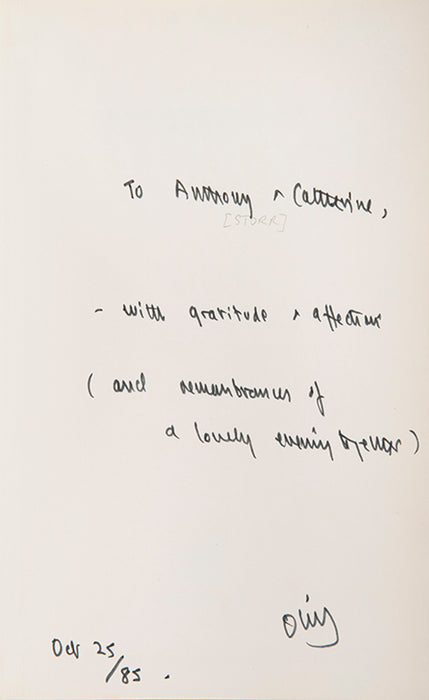 To Anthony & Catherine,
[STORR]
- with gratitude & affection
( and remembrances of
a lovely evening together )
Oliver
Oct 25
/85.